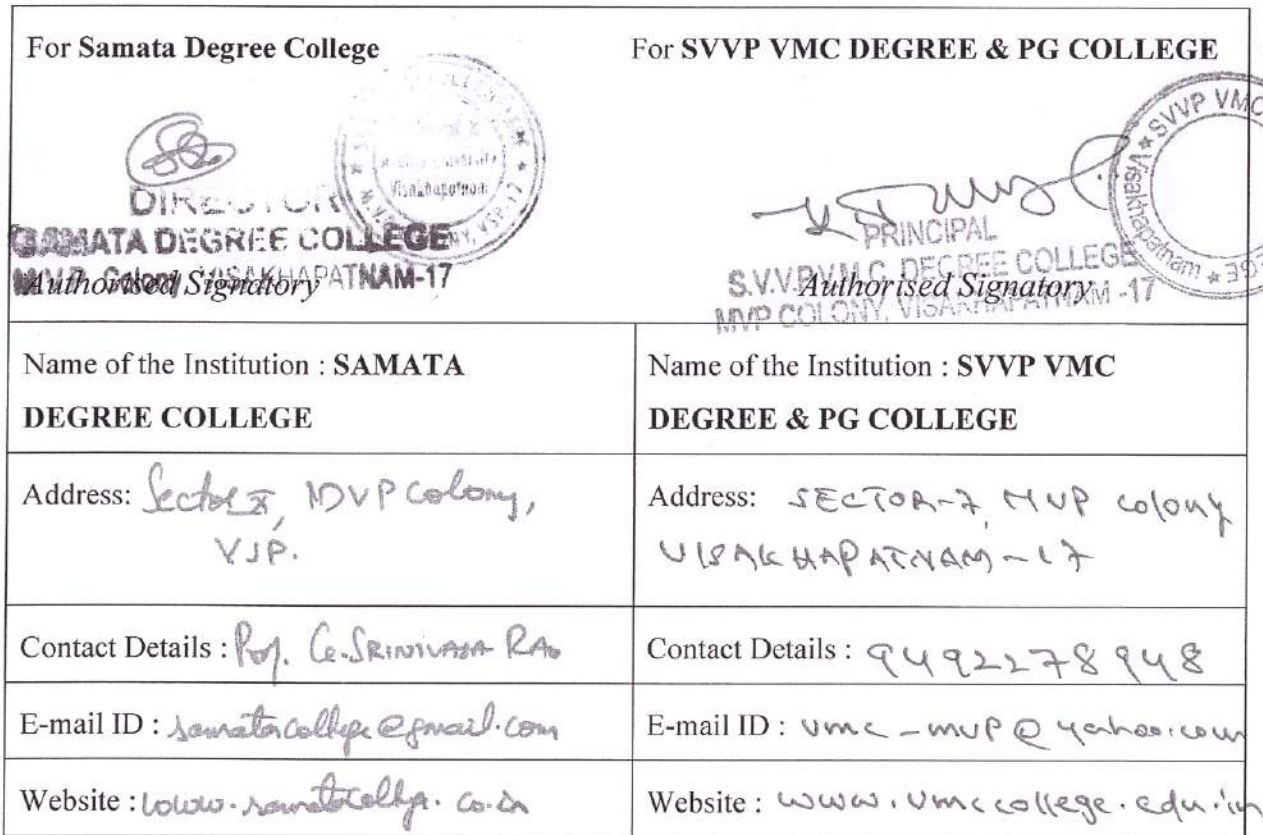 For Samata Degree College
For SVVP VMC DEGREE & PG COLLEGE
Visakhapatnam
DIRECTOR
SAMATA DEGREE COLLEGE
M.V.P. Colony, VISAKHAPATNAM-17
Authorised Signatory
SVVP VMC
Visakhapatnam
PRINCIPAL
S.V.V.P.V.M.C. DEGREE COLLEGE
MVP COLONY, VISAKHAPATNAM -17
Authorised Signatory
Name of the Institution : SAMATA
DEGREE COLLEGE
Name of the Institution : SVVP VMC
DEGREE & PG COLLEGE
Address: Sector X, MVP Colony,
VSP.
Address: SECTOR-7, MVP colony
VISAKHAPATNAM-17
Contact Details : Prof. G. SRINIVASA RAO
Contact Details : 9492278948
E-mail ID : samatacollege@gmail.com
E-mail ID : vmc_mvp@yahoo.com
Website : www.samatacollege.co.in
Website : www.vmccollege.edu.in